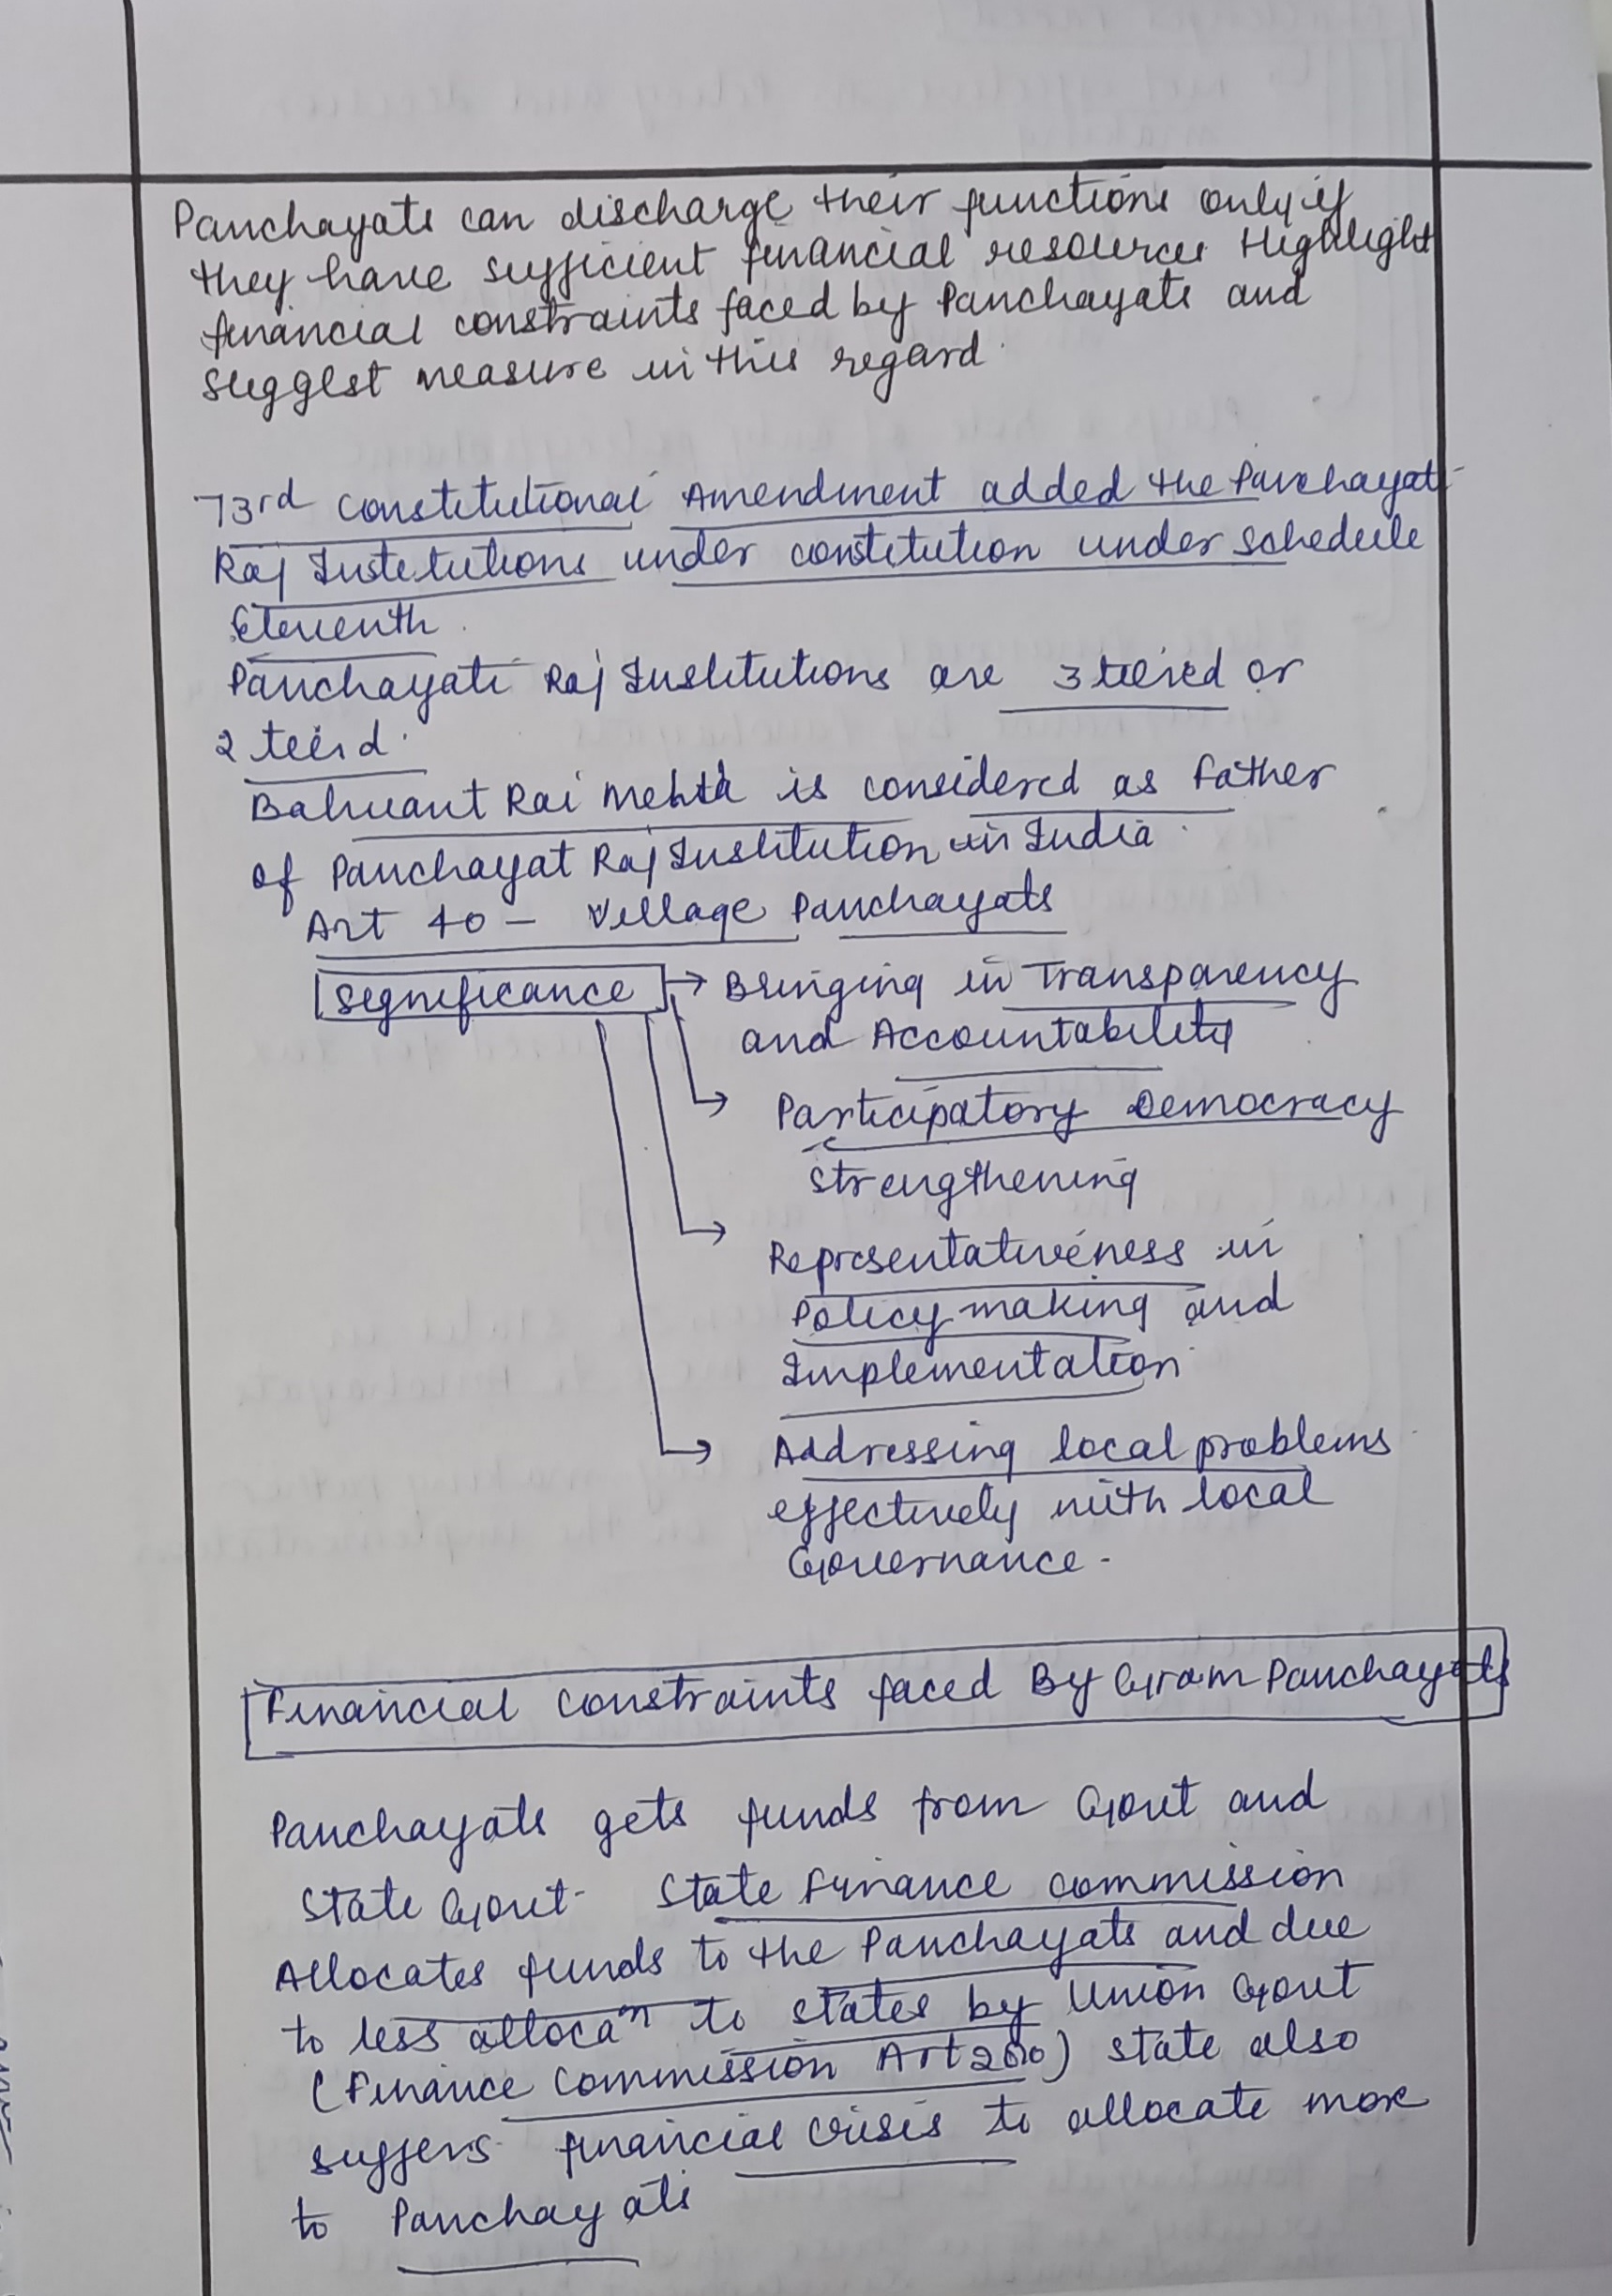 Panchayats can discharge their functions only if
they have sufficient financial resources Highlight
financial constraints faced by Panchayats and
suggest measure in this regard.
73rd Constitutional Amendment added the Panchayat
Raj Institutions under constitution under schedule
Eleventh.
Panchayati Raj Institutions are 3 teired or
2 teird.
Balwant Rai Mehta is considered as father
of Panchayat Raj Institution in India.
Art 40 - Village Panchayats
Significance → Bringing in Transparency
and Accountability
→ Participatory Democracy
strengthening
→ Representativeness in
Policy making and
Implementation.
→ Addressing local problems
effectively with local
Governance.
Financial constraints faced By Gram Panchayats
Panchayats gets funds from Govt and
State Govt. State Finance Commission
Allocates funds to the Panchayats and due
to less alloca^n to states by Union Govt
(Finance Commission Art 280) state also
suffers financial crisis to allocate more
to Panchayats